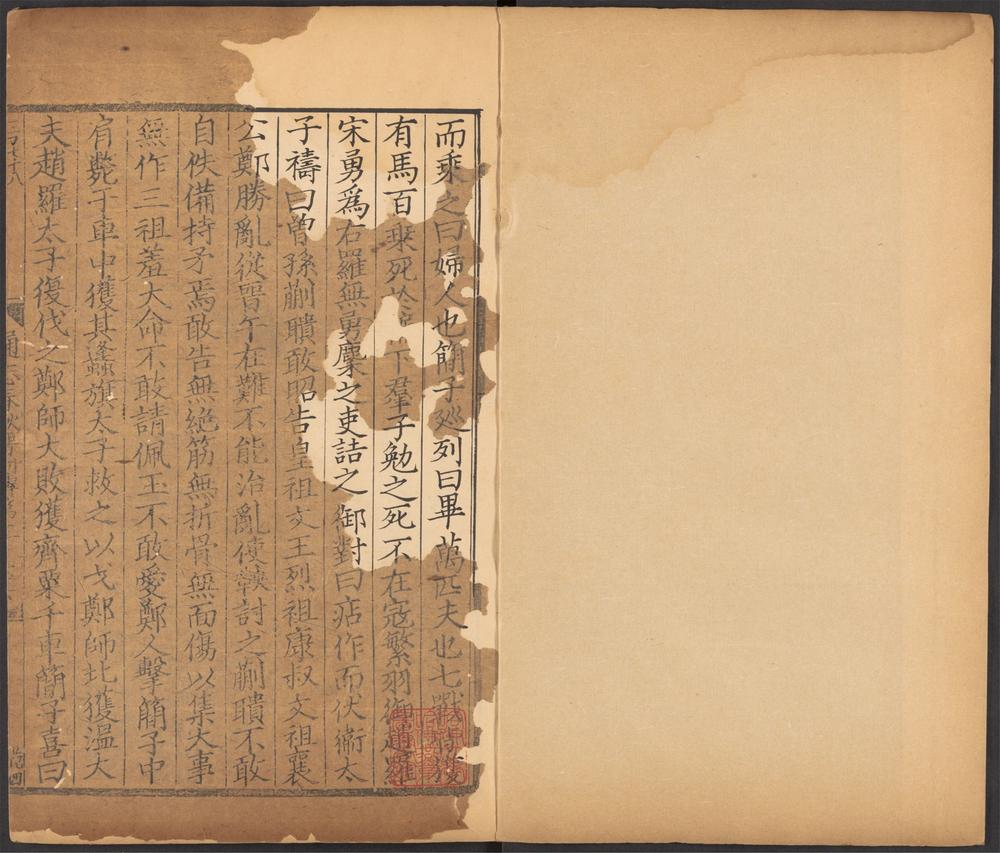 而乘之曰婦人也簡子廵列曰畢萬匹夫也七戰皆獲
有馬百乗死於 下羣子勉之死不在寇繁羽御趙羅
宋勇爲右羅無勇麇之吏詰之御對曰痁作而伏衞太
子禱曰曽孫蒯聵敢昭告皇祖文王烈祖康叔文祖襄
公鄭勝亂從晉午在難不能治亂使鞅討之蒯聵不敢
自佚備持矛焉敢告無絶筋無折骨無面傷以集大事
無作三祖羞大命不敢請佩玉不敢愛鄭人擊簡子中
肩斃于車中獲其蠭旗太子救之以戈鄭師北獲溫大
夫趙羅太子復伐之鄭師大敗獲齊粟千車簡子喜曰
通志春秋